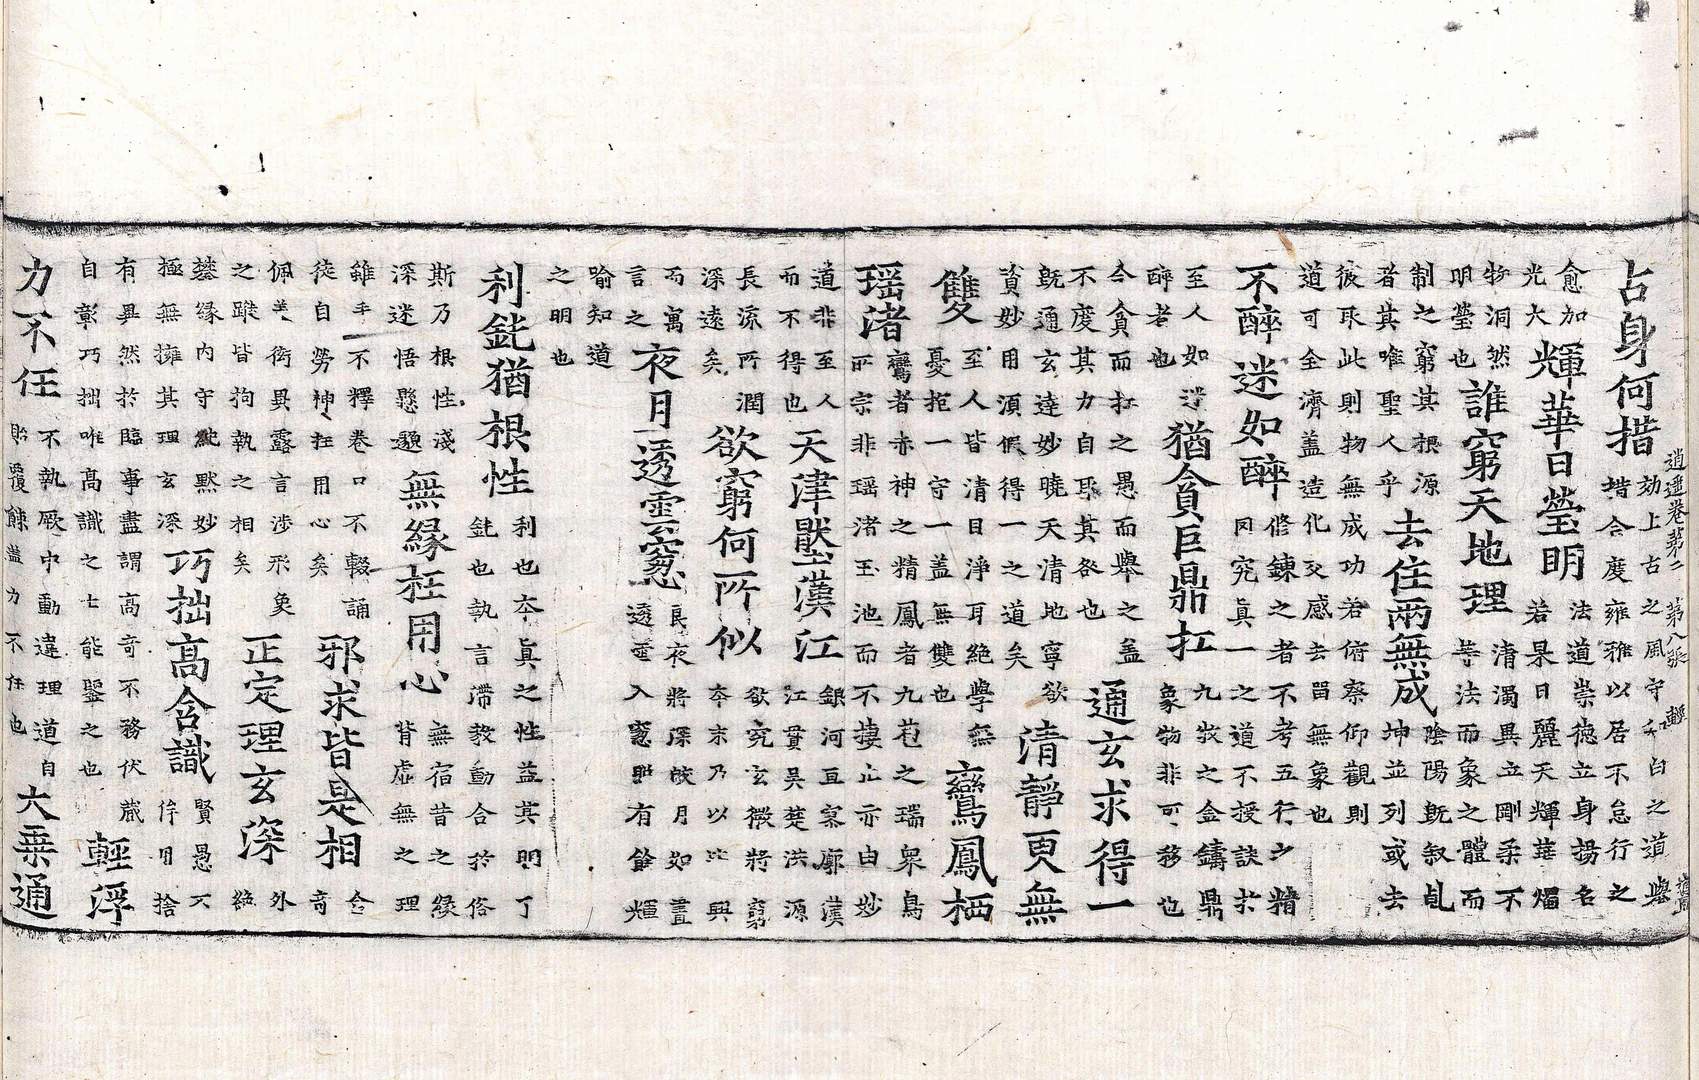 逍遥卷第二 第八張 輕
占身何措
効上古之風守千白之道舉
措合度雍雅以居不怠行之
愈加
光大
輝華日瑩明
法道崇德立身揚名
若杲日麗天輝華燭
物洞然
明瑩也
誰窮天地理
清濁異立剛柔不
等法而象之體而
制之窮其根源
者其唯聖人乎
去住兩無成
陰陽既叙乹
坤並列或去
彼取此則物無成功若俯察仰觀則
道可全濟蓋造化交感去留無象也
不醉迷如醉
修鍊之者不考五行少精
罔究真一之道不授訣於
至人如迷
醉者也
猶貪巨鼎扛
九牧之金鑄鼎
象物非可移也
今貪而扛之愚而舉之蓋
不度其力自取其咎也
通玄求得一
既通玄達妙曉天清地寧欲
資妙用須假得一之道矣
清靜更無
雙
至人皆清目淨耳絶學無
憂抱一守一蓋無雙也
鸞鳳栖
瑶渚
鸞者赤神之精鳳者九苞之瑞衆鳥
所宗非瑶渚玉池而不棲止亦由妙
道非至人
而不得也
天津壓漢江
銀河亘寥廓漢
江貫吳楚洪源
長流所潤
深遠矣
欲窮何所似
欲究玄微將窮
本末乃以比興
而寓
言之
夜月透雲窓
長夜將深皎月如晝
透雲入窓照有餘輝
喻知道
之明也
利鈍猶根性
利也本真之性益其明了
鈍也執言滯教動合於俗
斯乃根性淺
深迷悟懸題
無縁枉用心
無宿昔之縁
背虛無之理
雖手不釋卷口不輟誦
徒自勞神枉用心矣
邪求皆是相
合
奇
佩美衒異露言涉形象
之蹤皆拘執之相矣
正定理玄深
外
絶
攀縁内守 默妙
極無擁其理玄深
巧拙高含識
賢愚不
用捨
有異然於臨事盡謂高奇不務伏藏
自彰巧拙唯高識之士能鑒之也
輕浮
力不任
不執厥中動違理道自
貽覆餗蓋力不任也
大乗通